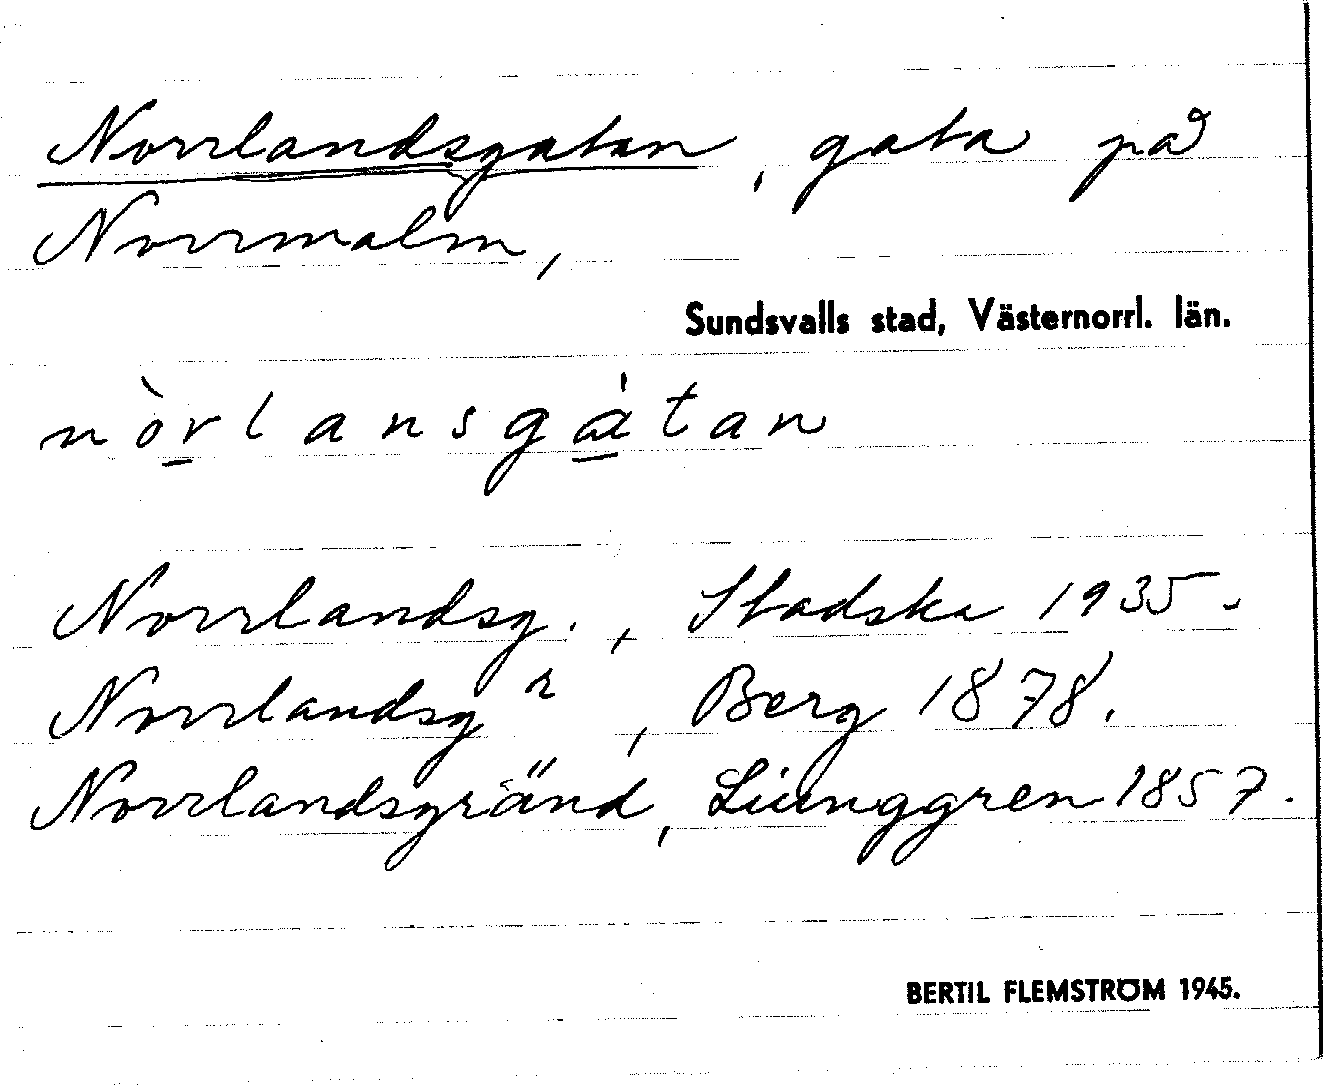 Norrlandsgatan, gata på
Norrmalm,
Sundsvalls stad, Västernorrl. län.
nòrlansgàtan
Norrlandsg., Stadska 1935.
Norrlandsg n, Berg 1878.
Norrlandsgränd, Liunggren 1857.
BERTIL FLEMSTRÖM 1945.